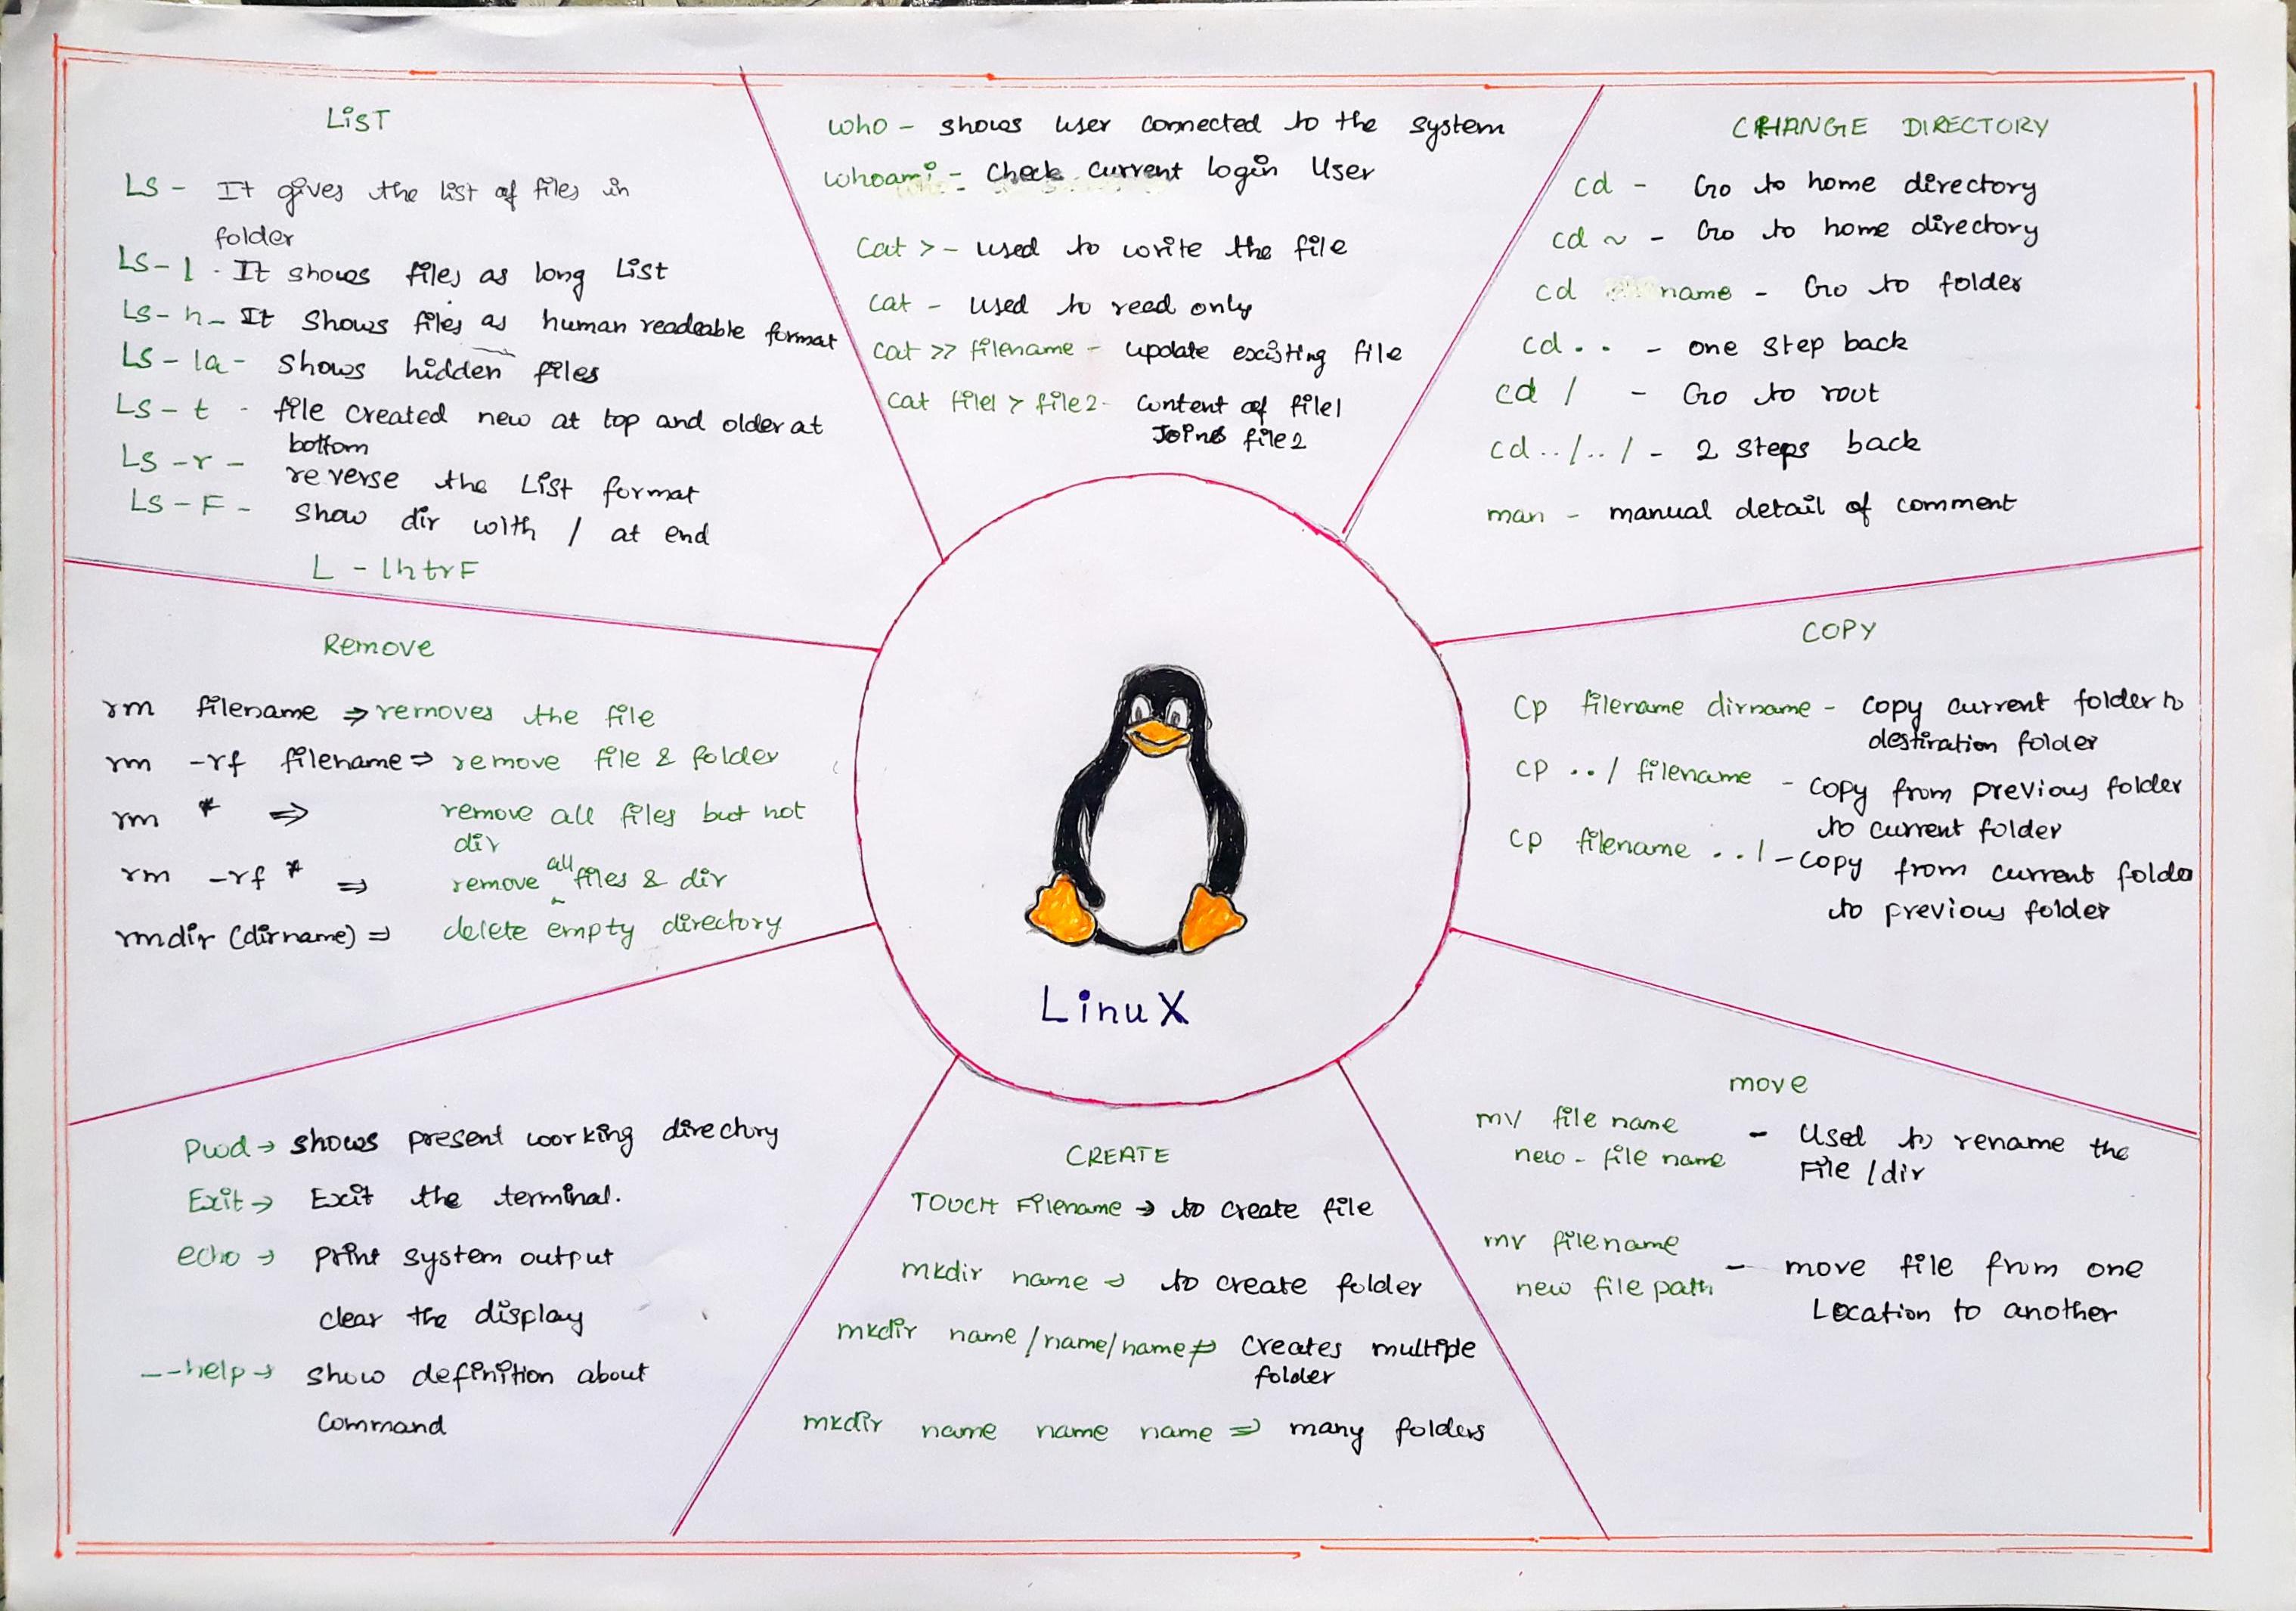 LIST
LS - It gives the list of files in
folder
LS-l - It shows files as long List
LS-h - It shows files as human readeable format
LS-la - shows hidden files
LS-t - file created new at top and older at
bottom
LS-r - reverse the List format
LS-F - show dir with / at end
L - lhtrF
who - shows user connected to the system
whoami - check current login User
Cat > - used to write the file
cat - used to read only
cat >> filename - update existing file
cat file1 > file2 - content of file1
Joins file2
CHANGE DIRECTORY
cd - Go to home directory
cd ~ - Go to home directory
cd name - Go to folder
cd .. - one step back
cd / - Go to root
cd ../../ - 2 steps back
man - manual detail of comment
Remove
rm filename ⇒ removes the file
rm -rf filename ⇒ remove file & folder
rm * ⇒ remove all files but not
dir
rm -rf * ⇒ remove all files & dir
rmdir (dirname) ⇒ delete empty directory
LinuX
COPY
Cp filename dirname - copy current folder to
destiration folder
CP ../ filename - copy from previous folder
to current folder
Cp filename ../ - copy from current folder
to previous folder
Pwd → shows present working directory
Exit → Exit the terminal.
echo → print system output
clear the display
--help → show definition about
Command
CREATE
TOUCH Filename → to create file
mkdir name ⇒ to create folder
mkdir name/name/name ⇒ creates multiple
folder
mkdir name name name ⇒ many folders
move
mv file name
new - file name - Used to rename the
File /dir
mv filename
new file path - move file from one
Location to another